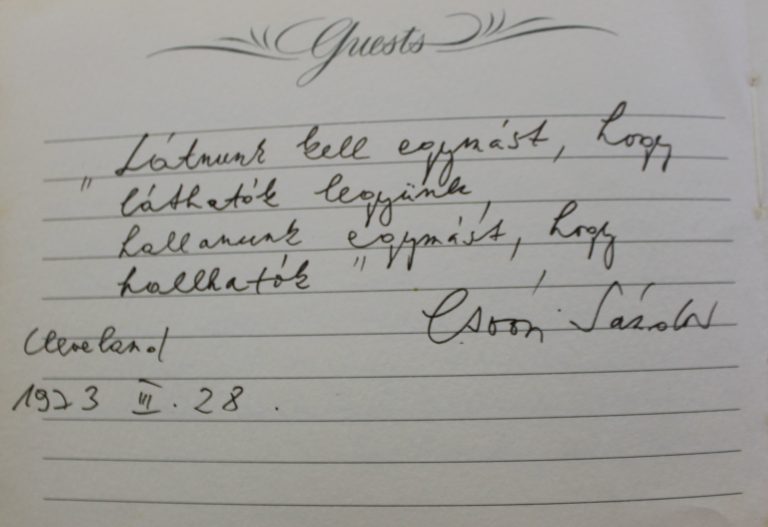 Guests
„Látnunk kell egymást, hogy
láthatók legyünk,
hallanunk egymást, hogy
hallhatók"
Csoóri Sándor
Cleveland
1973 III. 28.